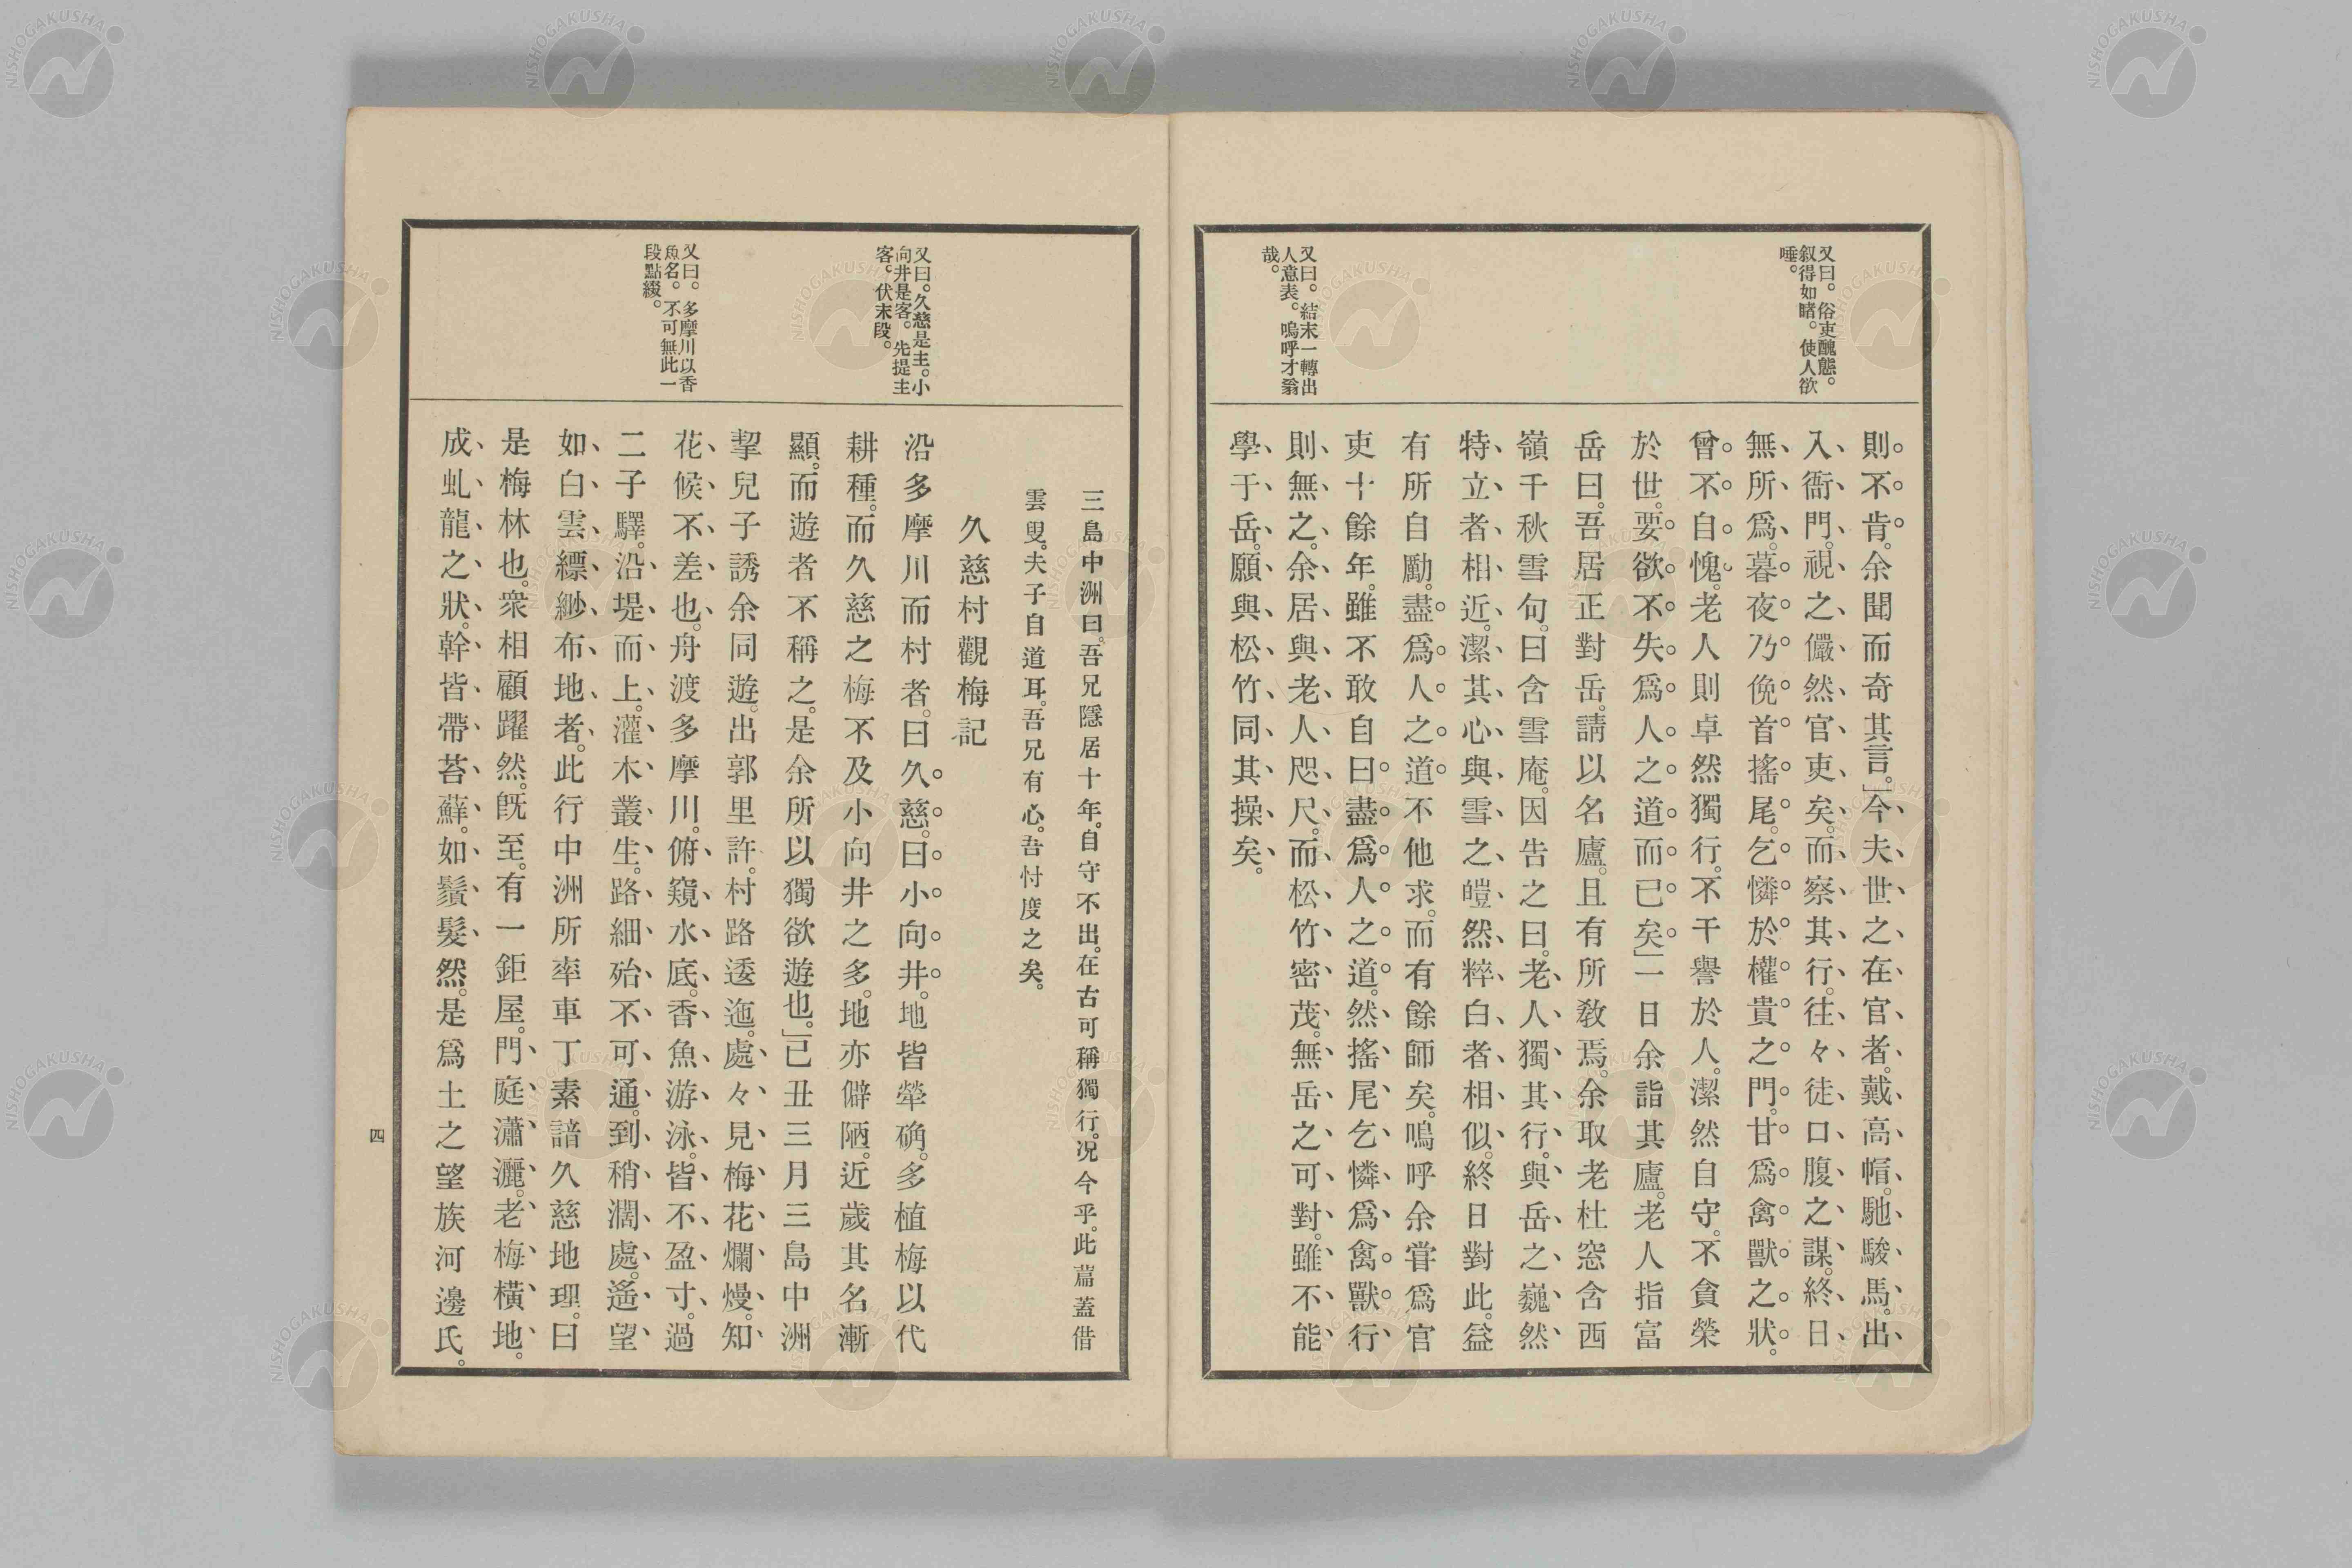 又曰。俗吏醜態。
叙得如睹。使人欲
唾。
又曰。結末一轉出
人意表。嗚呼才翁
哉。
則不肯。余聞而奇其言。」今夫世之在官者。戴高帽。馳駿馬。出
入衙門。視之儼然官吏矣。而察其行。往々徒口腹之謀。終日
無所爲。暮夜乃俛首搖尾。乞憐於權貴之門。甘爲禽獸之狀。
曾不自愧。老人則卓然獨行。不干譽於人。潔然自守。不貪榮
於世。要欲不失爲人之道而已矣」一日余詣其廬。老人指富
岳曰。吾居正對岳。請以名廬。且有所敎焉。余取老杜窓含西
嶺千秋雪句。曰含雪庵。因告之曰。老人獨其行。與岳之巍然
特立者相近。潔其心。與雪之皚然粹白者相似。終日對此。益
有所自勵。盡爲人之道不他求。而有餘師矣。嗚呼余甞爲官
吏十餘年。雖不敢自曰盡爲人之道。然搖尾乞憐爲禽獸行
則無之。余居與老人咫尺。而松竹密茂。無岳之可對。雖不能
學于岳。願與松竹同其操矣。
又曰。久慈是主。小
向井是客。先提主
客。伏末段。
又曰。多摩川以香
魚名。不可無此一
段點綴。
三島中洲曰。吾兄隱居十年。自守不出。在古可稱獨行。况今乎。此篇蓋借
雲叟。夫子自道耳。吾兄有心。吾忖度之矣。
久慈村觀梅記
沿多摩川而村者。曰久慈。曰小向井。地皆犖确。多植梅以代
耕種。而久慈之梅不及小向井之多。地亦僻陋。近歲其名漸
顯。而遊者不稱之。是余所以獨欲遊也。」己丑三月三島中洲
挈兒子誘余同遊。出郭里許。村路逶迤。處々見梅花爛熳。知
花候不差也。舟渡多摩川。俯窺水底。香魚游泳。皆不盈寸。過
二子驛。沿堤而上。灌木叢生。路細殆不可通。到稍濶處。遙望
如白雲縹緲布地者。此行中洲所率車丁素諳久慈地理。曰
是梅林也。衆相顧躍然。既至。有一鉅屋。門庭瀟灑。老梅橫地。
成虬龍之狀。幹皆帶苔蘚。如鬚髮然。是爲土之望族河邊氏。
四